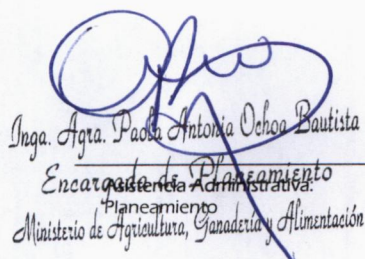 Inga. Agra. Paola Antonia Ochoa Bautista
Encargada de Planeamiento
Asistencia Administrativa:
Planeamiento
Ministerio de Agricultura, Ganadería y Alimentación